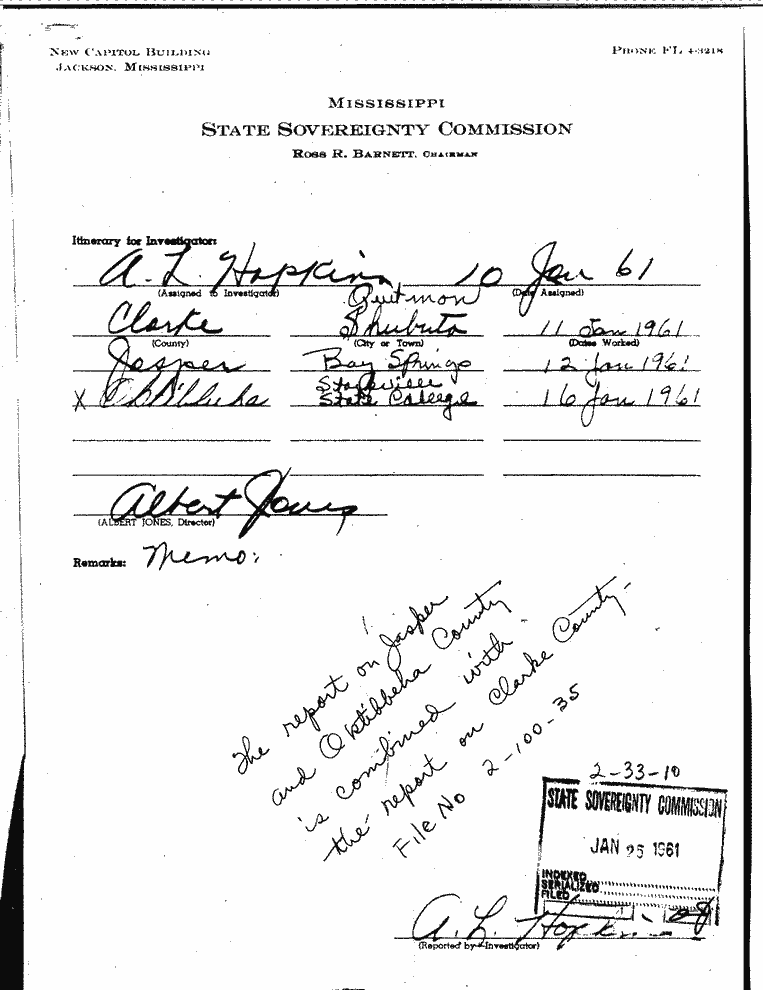 NEW CAPITOL BUILDING
JACKSON, MISSISSIPPI
PHONE FL 4-3218
MISSISSIPPI
STATE SOVEREIGNTY COMMISSION
ROSS R. BARNETT, CHAIRMAN
Itinerary for Investigator:
A. L. Hopkins 10 Jan 61
(Assigned to Investigator) (Date Assigned)
Quitman
Clarke Shubuta 11 Jan 1961
(County) (City or Town) (Dates Worked)
Jasper Bay Springs 12 Jan 1961
Starkville
X Oktibbeha State College 16 Jan 1961
Albert Jones
(ALBERT JONES, Director)
Remarks: Memo:
The report on Jasper
and Oktibbeha County
is combined with
the report on Clarke County-
File No 2-100-35
2-33-10
STATE SOVEREIGNTY COMMISSION
JAN 25 1961
INDEXED
SERIALIZED
FILED
A. L. Hopkins
(Reported by Investigator)